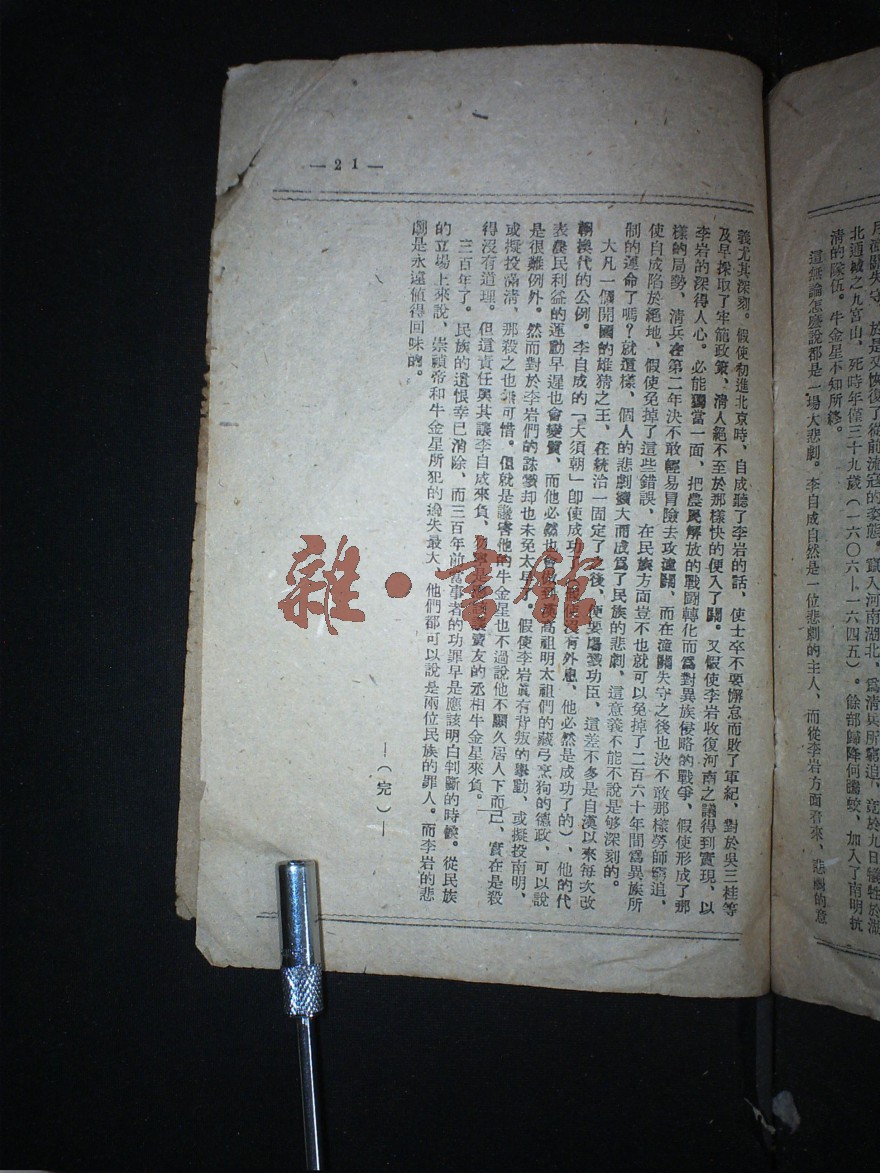 北通城之九宮山，死時年僅三十九歲（一六〇六—一六四五）。餘部歸降何騰蛟，加入了南明抗
清的隊伍。牛金星不知所終。
這無論怎麼說都是一場大悲劇。李自成自然是一位悲劇的主人，而從李岩方面看來，悲劇的意
義尤其深刻。假使初進北京時，自成聽了李岩的話，使士卒不要懈怠而敗了軍紀，對於吳三桂等
及早採取了牢籠政策，清人絕不至於那樣快的便入了關。又假使李岩收復河南之議得到實現，以
李岩的深得人心。必能獨當一面，把農民解放的戰鬪轉化而為對異族侵略的戰爭，假使形成了那
樣的局勢，清兵在第二年決不敢輕易冒險去攻潼關，而在潼關失守之後也決不敢那樣勞師窮追，
使自成陷於絕地，假使免掉了這些錯誤，在民族方面豈不也就可以免掉了二百六十年間為異族所
制的運命了嗎？就這樣，個人的悲劇擴大而成為了民族的悲劇，這意義不能不說是够深刻的。
大凡一個開國的雄猜之王，在統治一固定了之後，便要屠戮功臣，這差不多是自漢以來每次改
朝換代的公例。李自成的「大須朝」卽使成功了 沒有外患，他必然是成功了的），他的代
表農民利益的運動早遲也會變質，而他必然也會做到漢高祖明太祖們的藏弓烹狗的德政，可以說
是很難例外。然而對於李岩們的誅戮却也未免太早了。假使李岩真有背叛的舉動，或擬投南明，
或擬投滿清，那殺之也無可惜。但就是讒害他的牛金星也不過說他不願久居人下而已，實在是殺
得沒有道理。但這責任與其讓李自成來負，勿寧是 賣友的丞相牛金星來負。
三百年了。民族的遺恨幸已消除，而三百年前當事者的功罪早是應該明白判斷的時候。從民族
的立場上來說，崇禎帝和牛金星所犯的過失最大，他們都可以說是兩位民族的罪人。而李岩的悲
劇是永遠值得回味的。
—（完）—
— 21 —
雜·書館